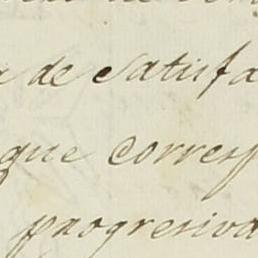 de Satisfa
que corresp
progresiva